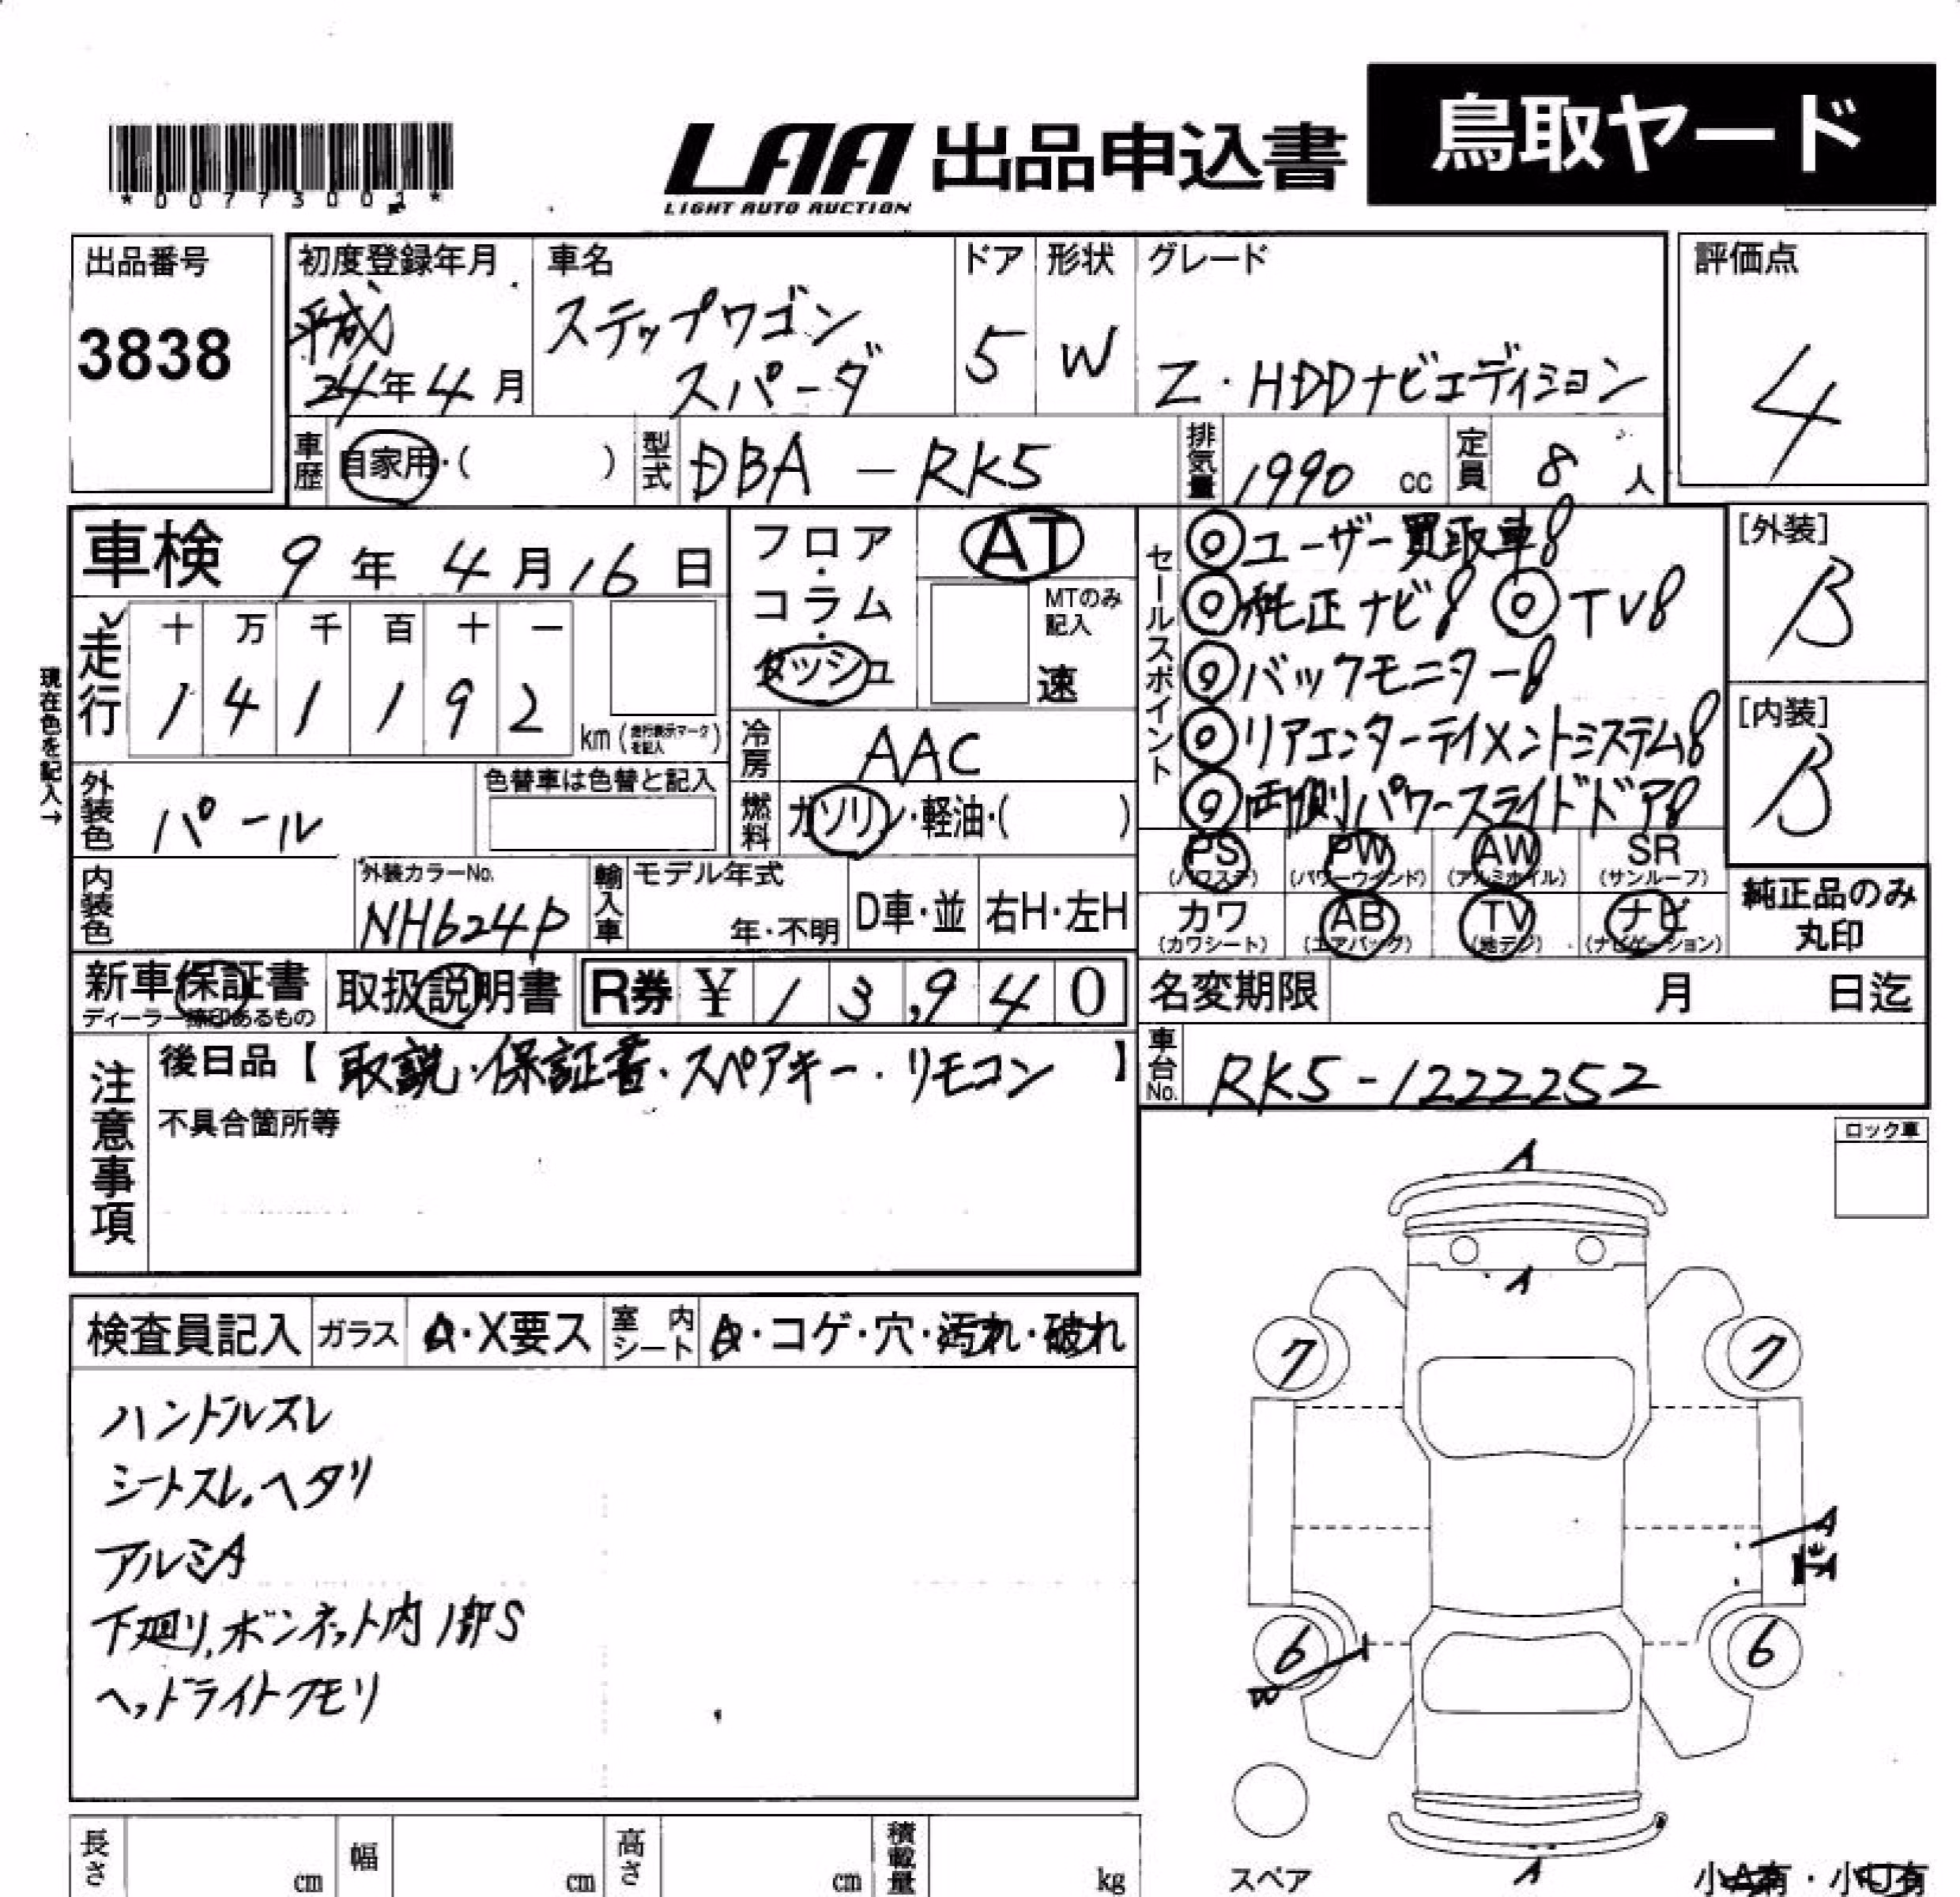 *00773001*
LAA 出品申込書 鳥取ヤード
LIGHT AUTO AUCTION
出品番号
3838
初度登録年月
平成
24年4月
車名
ステップワゴン
スパーダ
ドア
5
形状
W
グレード
Z・HDDナビエディション
評価点
4
車歴 自家用・( )
型式 DBA-RK5
排気量 1990 cc
定員 8人
車検 9年4月16日
走行
十 万 千 百 十 一
1 4 1 1 9 2 km(走行表示マークを記入)
現在色を記入→
外装色 パール
色替車は色替と記入
内装色
外装カラーNo.
NH624P
フロア・コラム・ダッシュ
AT
MTのみ記入
速
冷房 AAC
燃料 ガソリン・軽油・( )
輸入車 モデル年式
年・不明
D車・並 右H・左H
セールスポイント
◎ユーザー買取車!!
◎純正ナビ!! ◎TV!!
◎バックモニター!!
◎リアエンターテイメントシステム!!
◎両側パワースライドドア!!
[外装]
B
[内装]
B
PS PW AW SR
(パワステ) (パワーウインド) (アルミホイル) (サンルーフ)
カワ AB TV ナビ
(カワシート) (エアバッグ) (地デジ) (ナビゲーション)
純正品のみ
丸印
新車保証書
ディーラー捺印あるもの
取扱説明書
R券 ¥ 13,940
名変期限 月 日迄
注意事項
後日品【取説・保証書・スペアキー・リモコン】
不具合箇所等
車台No. RK5-1222252
ロック車
検査員記入 ガラス A・X要ス 室内シート A・コゲ・穴・汚れ・破れ
ハンドルスレ
シートスレ、ヘタリ
アルミA
下廻り、ボンネット内1部S
ヘッドライトクモリ
A
A
7 7
A
6 6
W
A
スペア
小A有・小U有
長さ cm 幅 cm 高さ cm 積載量 kg